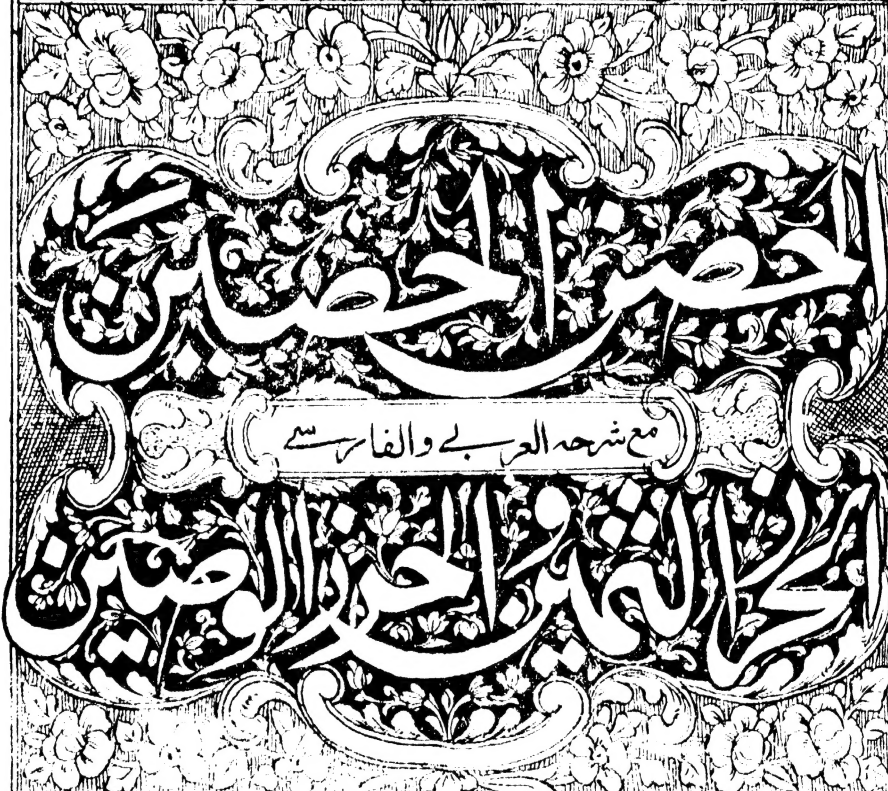 الحصن الحصین
مع شرحہ العربے والفارسے
الحرز الثمین و الحرز الوصین